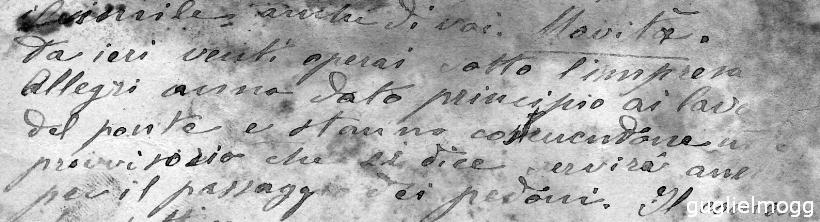 anche di voi. Novità.
Da ieri venti operai sotto l'impresa
Allegri anno dato principio ai lavo
del ponte e stanno costruendone un
provvisorio che si dice servirà anc
per il passaggio dei pedoni. Il
guglielmogg